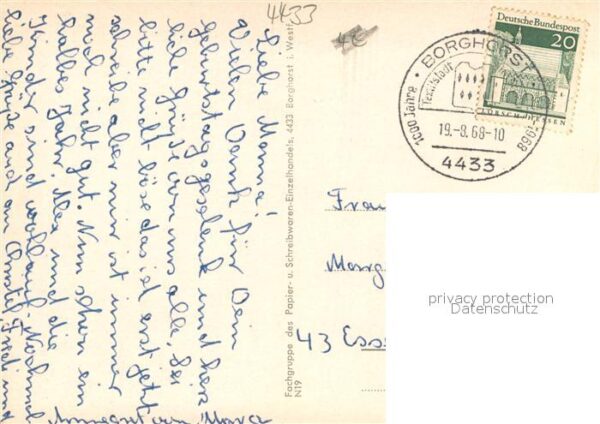 4433
4€
Liebe Mama!
Vielen Dank für Dein
Geburtstagsgeschenk und herz
liche Grüße von uns alle, sei
bitte nicht böse das ich erst jetzt
schreibe aber mir ist immer
noch nicht gut. Nun schon ein
halbes Jahr. Max und die
Kinder sind wohlauf. Nochmal
liebe Grüße auch an
Fachgruppe des Papier- u. Schreibwaren-Einzelhandels, 4433 Borghorst i. Westf.
N19
Deutsche Bundespost
20
LORSCH HESSEN
BORGHORST
Textilstadt
1000 Jahre
968-1968
19.-8.68-10
4433
Frau
Marg
43 Ess
privacy protection
Datenschutz